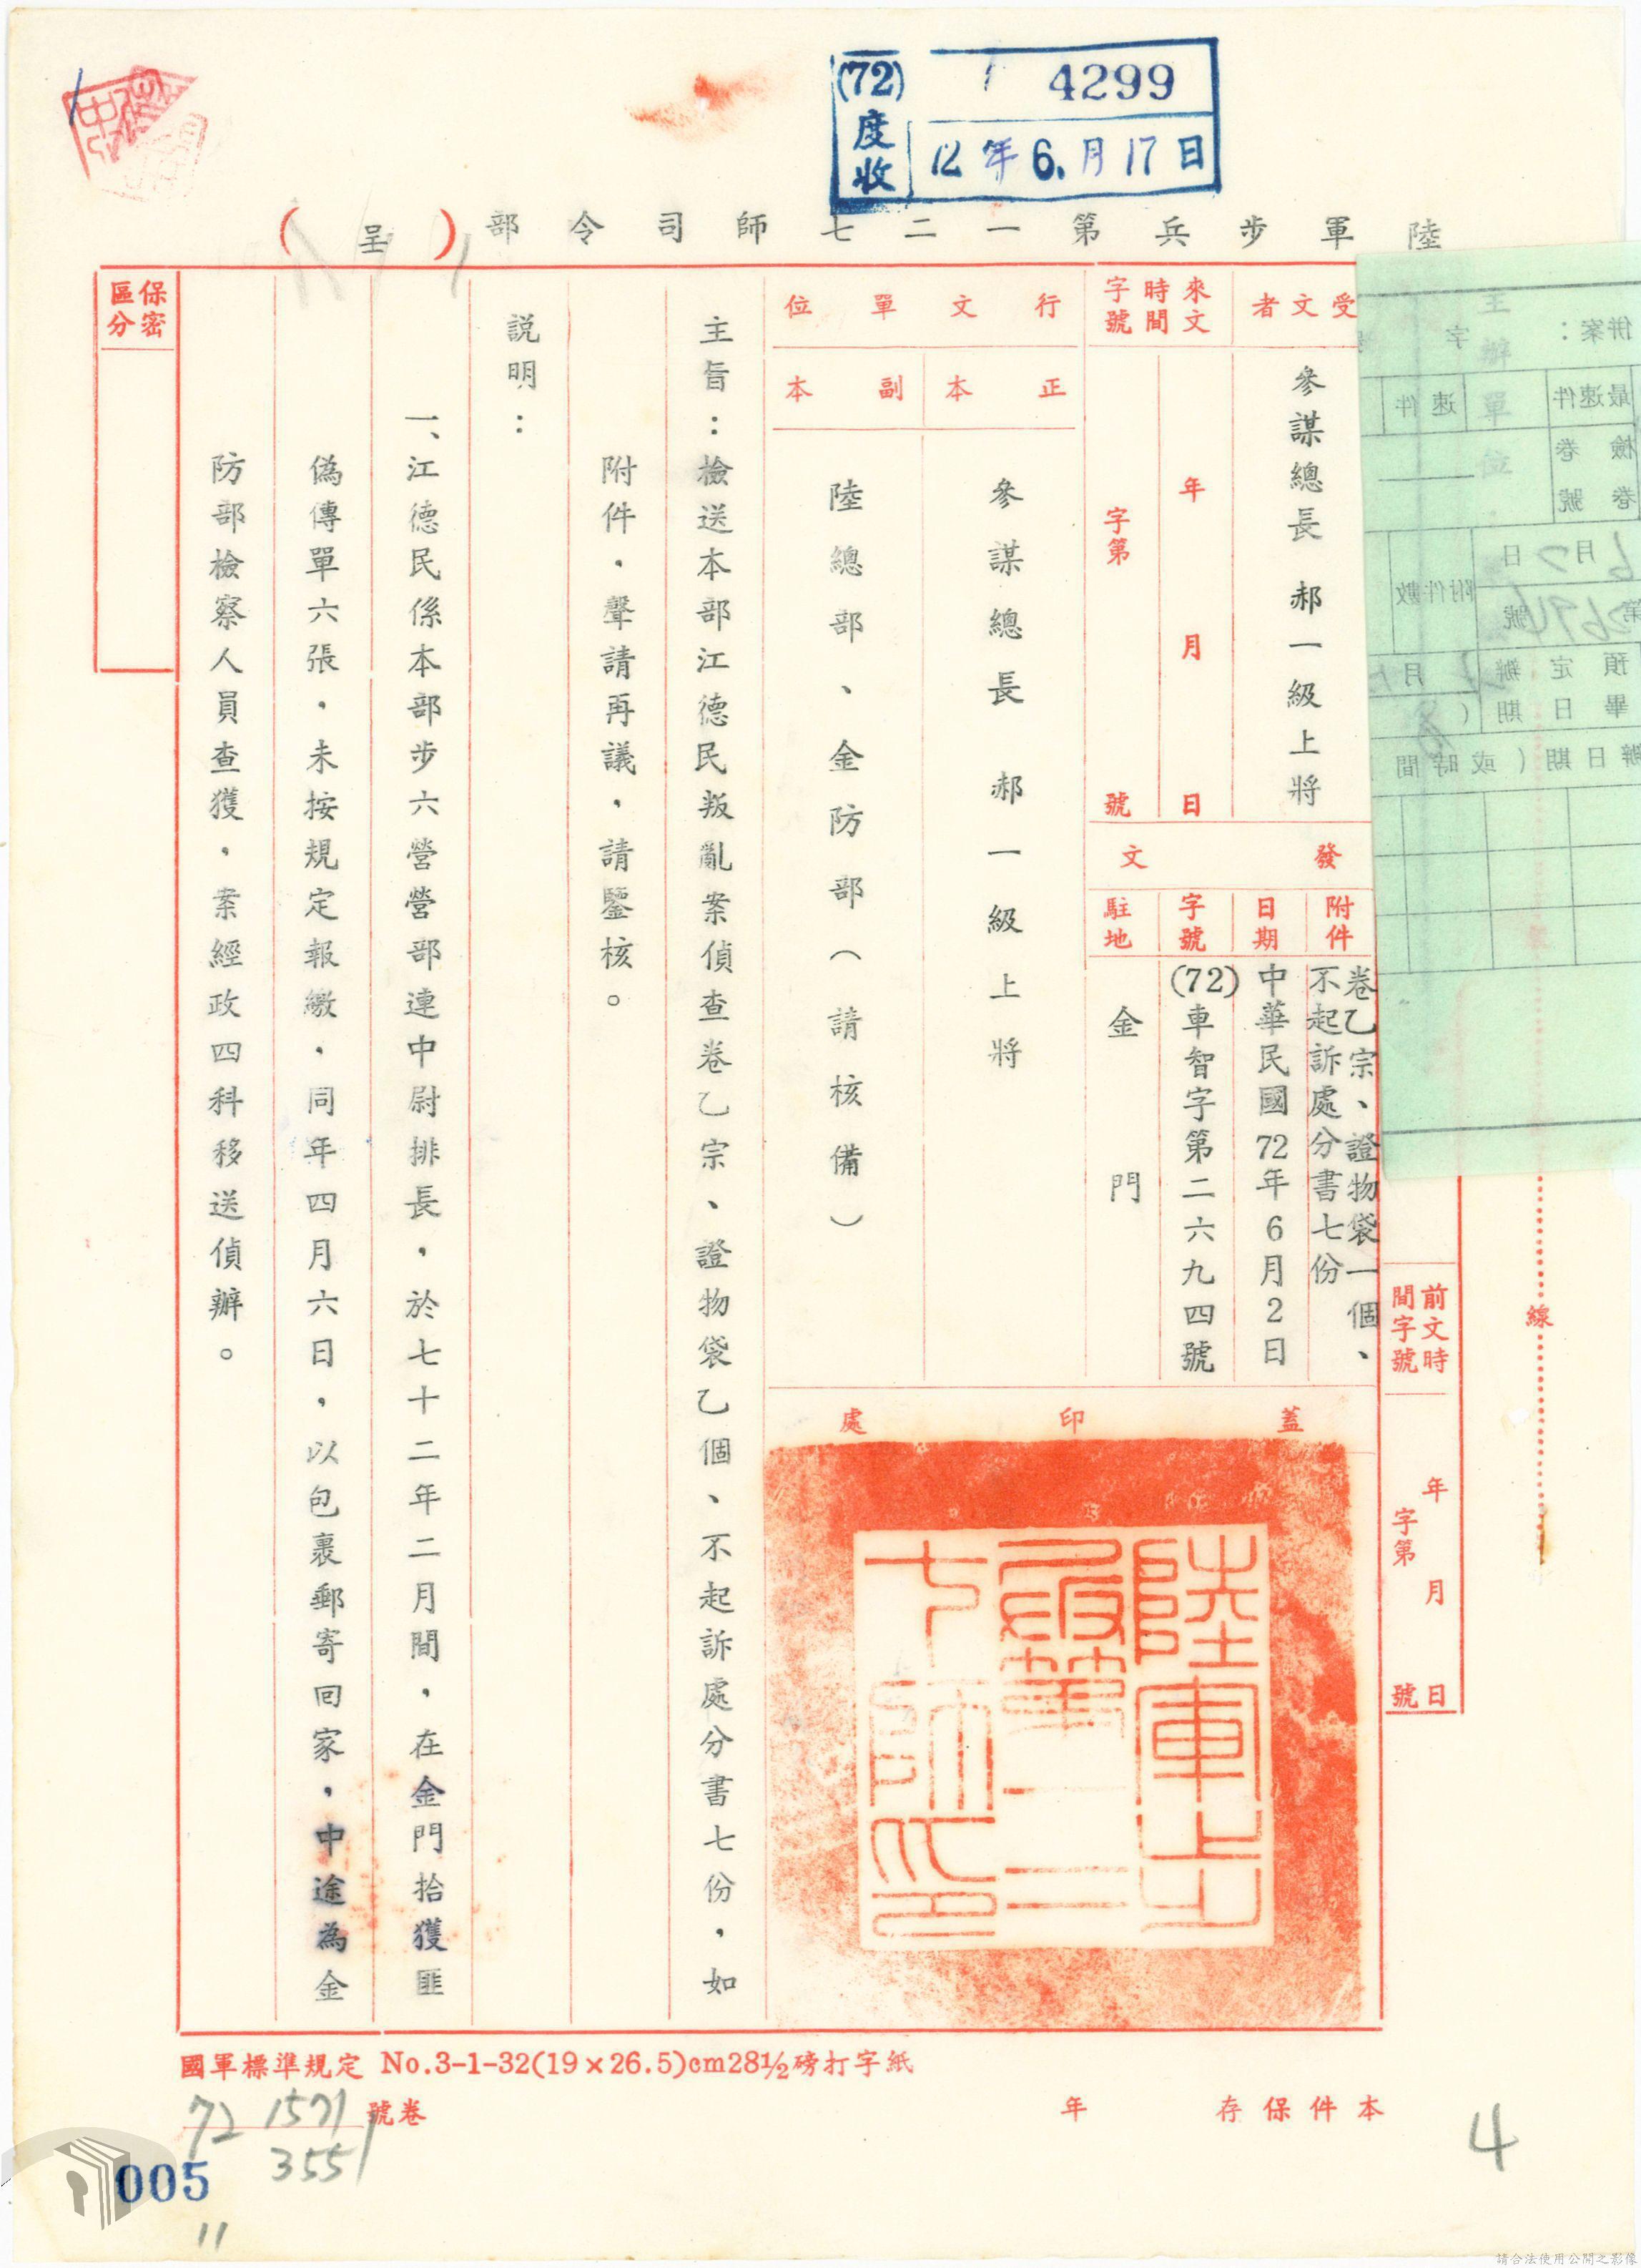 (72)度收
4299
12年6.月17日
陸軍步兵第一二七師司令部(呈)
受文者
參謀總長 郝一級上將
來文時間字號
年月日
字第號
發文
附件
卷乙宗、證物袋一個、
不起訴處分書七份
日期
中華民國72年6月2日
字號
(72)車智字第二六九四號
駐地
金門
行文單位
正本
參謀總長 郝一級上將
副本
陸總部、金防部(請核備)
蓋印處
陸軍步
兵第一二
七師印
主旨:檢送本部江德民叛亂案偵查卷乙宗、證物袋乙個、不起訴處分書七份,如
附件,聲請再議,請鑒核。
説明:
一、江德民係本部步六營營部連中尉排長,於七十二年二月間,在金門拾獲匪
偽傳單六張,未按規定報繳,同年四月六日,以包裹郵寄回家,中途為金
防部檢察人員查獲,案經政四科移送偵辦。
保密區分
前文時間字號
年月日
字第號
線
併案:
字
最速件
速件
檢卷
卷號
6月2日
附件數
預定辦
畢日期(
月
辦日期(或時間
主辦單位
國軍標準規定 No.3-1-32(19×26.5)cm28½磅打字紙
本件保存年
號卷
72 1571
3551
4
005
11
請合法使用公開之影像